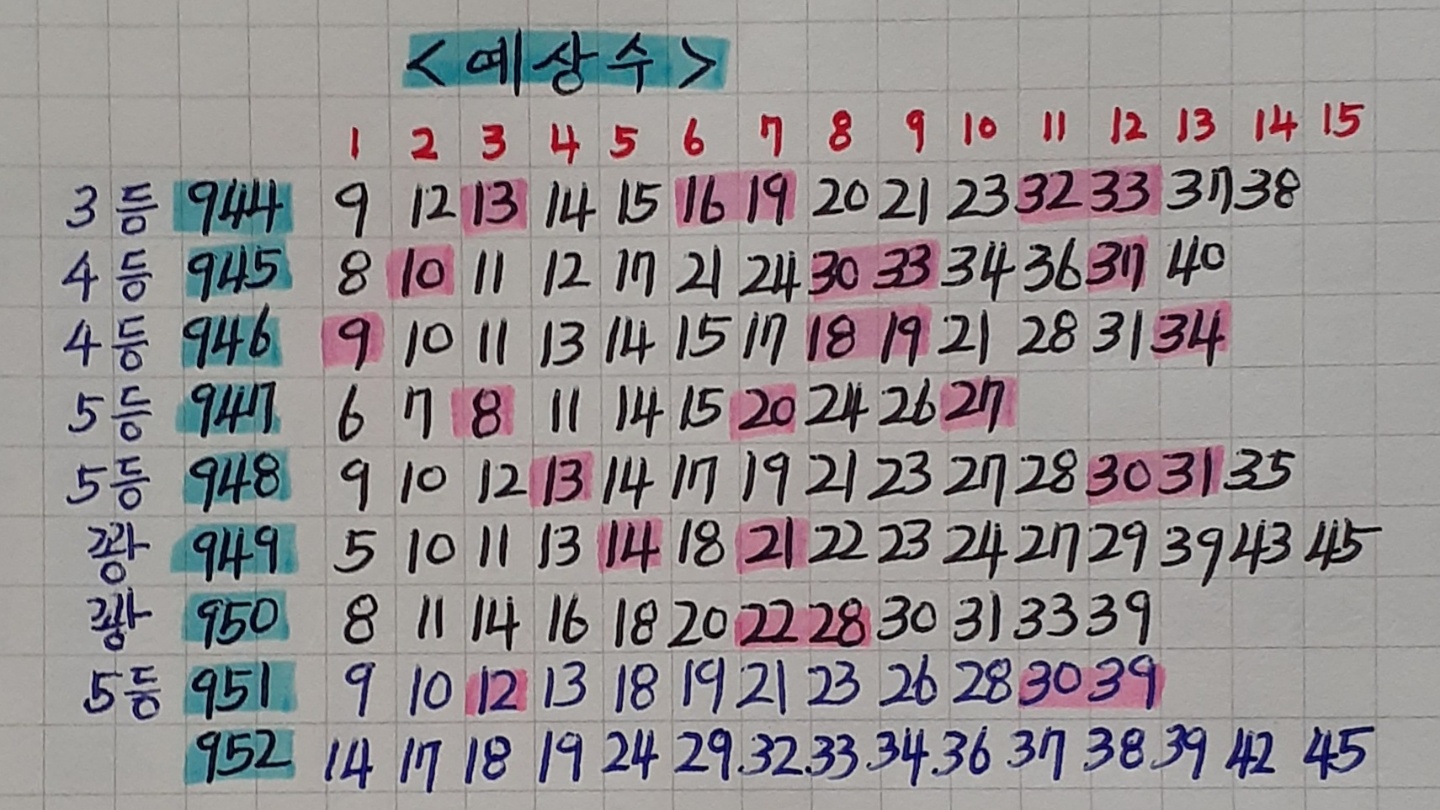 <예상수>
1 2 3 4 5 6 7 8 9 10 11 12 13 14 15
3등 944 9 12 13 14 15 16 19 20 21 23 32 33 37 38
4등 945 8 10 11 12 17 21 24 30 33 34 36 37 40
4등 946 9 10 11 13 14 15 17 18 19 21 28 31 34
5등 947 6 7 8 11 14 15 20 24 26 27
5등 948 9 10 12 13 14 17 19 21 23 27 28 30 31 35
꽝 949 5 10 11 13 14 18 21 22 23 24 27 29 39 43 45
꽝 950 8 11 14 16 18 20 22 28 30 31 33 39
5등 951 9 10 12 13 18 19 21 23 26 28 30 39
952 14 17 18 19 24 29 32 33 34 36 37 38 39 42 45